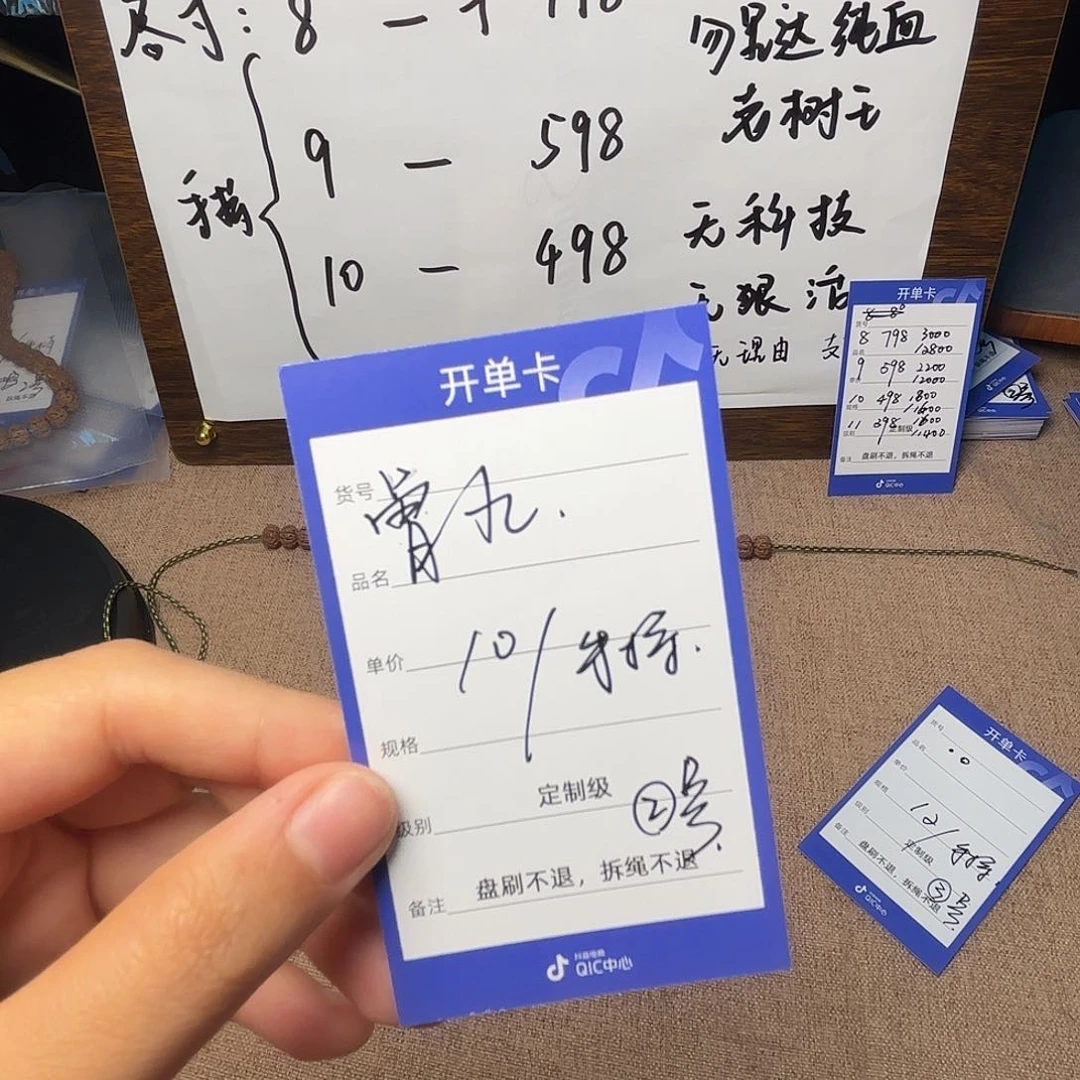 尺寸: 8 —
9 — 598
10 — 498
勿忘达纯血
老树王
无科技
无狠活
无理由
开单卡
货号
品名
单价 10/
规格
级别 定制级
②号
备注 盘刷不退，拆绳不退
抖音电商
QIC中心
开单卡
货号
8 798 3000
品名 /2800
9 598 2200
单价 /2000
10 498 1800
规格 /1600
11 398 1600
级别 定制级 /1400
备注 盘刷不退，拆绳不退
QIC中心
开单卡
货号
品名
单价
规格
级别 12/
定制级
备注 盘刷不退，拆绳不退
③号
QIC中心